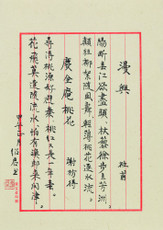 漫興
杜甫
腸斷春江欲盡頭杖藜徐步立芳洲
顛狂柳絮隨風舞輕薄桃花逐水流
慶全庵桃花
謝枋得
尋得桃源好避秦桃紅又是一年春
花飛莫遣隨流水怕有漁郎來問津